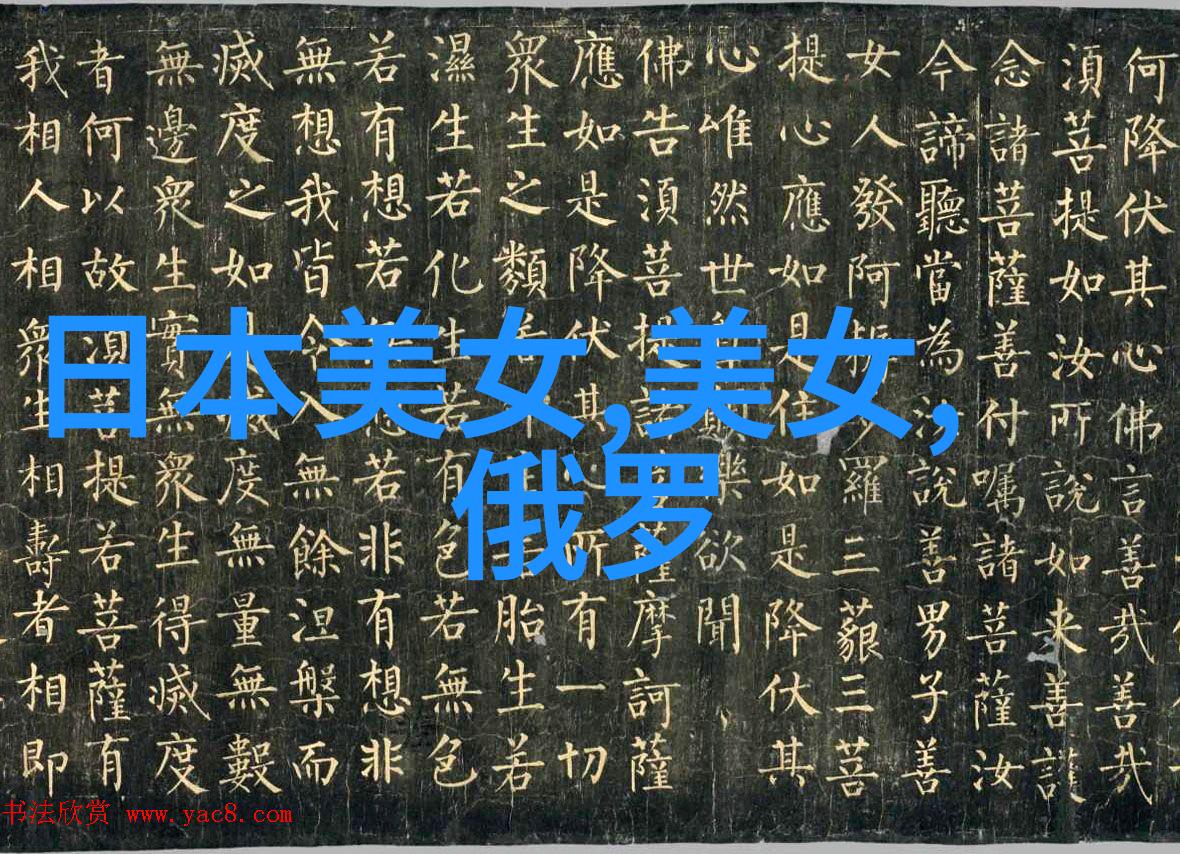 何降伏其心佛言善哉善哉
湏菩提如汝所說如来善護
念諸菩薩善付嘱諸菩薩汝
今諦聽當為汝說善男子善
女人發阿羅三藐三菩
提心應如是住如是降伏其
心唯然世樂欲聞
佛告湏菩提諸薩摩訶薩
應如是降伏其心所有一切
眾生之類若生胎生若
濕生若化生若有色若無色
若有想若想若非有想非
無想我皆令入無餘涅槃而
滅度之如滅度無量無數
無邊眾生實無眾生得滅度
者何以故湏菩提若菩薩有
我相人相眾生相壽者相即
日本美女,美女,
俄罗
书法欣赏 www.yac8.com